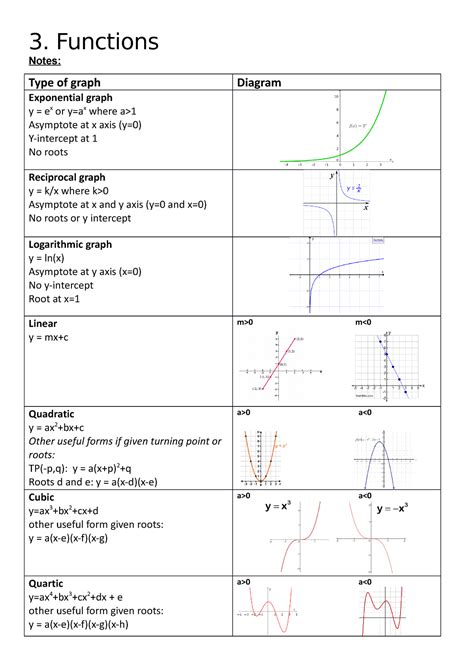 3. Functions
Notes:
Type of graph
Diagram
Exponential graph
y = eˣ or y=aˣ where a>1
Asymptote at x axis (y=0)
Y-intercept at 1
No roots
Reciprocal graph
y = k/x where k>0
Asymptote at x and y axis (y=0 and x=0)
No roots or y intercept
y
x
Logarithmic graph
y = ln(x)
Asymptote at y axis (x=0)
No y-intercept
Root at x=1
Linear
y = mx+c
m>0
m<0
Quadratic
y = ax²+bx+c
Other useful forms if given turning point or
roots:
TP(-p,q): y = a(x+p)²+q
Roots d and e: y = a(x-d)(x-e)
a>0
a<0
Cubic
y=ax³+bx²+cx+d
other useful form given roots:
y = a(x-e)(x-f)(x-g)
a>0
y = x³
a<0
y = −x³
Quartic
y=ax⁴+bx³+cx²+dx + e
other useful form given roots:
y = a(x-e)(x-f)(x-g)(x-h)
a>0
a<0